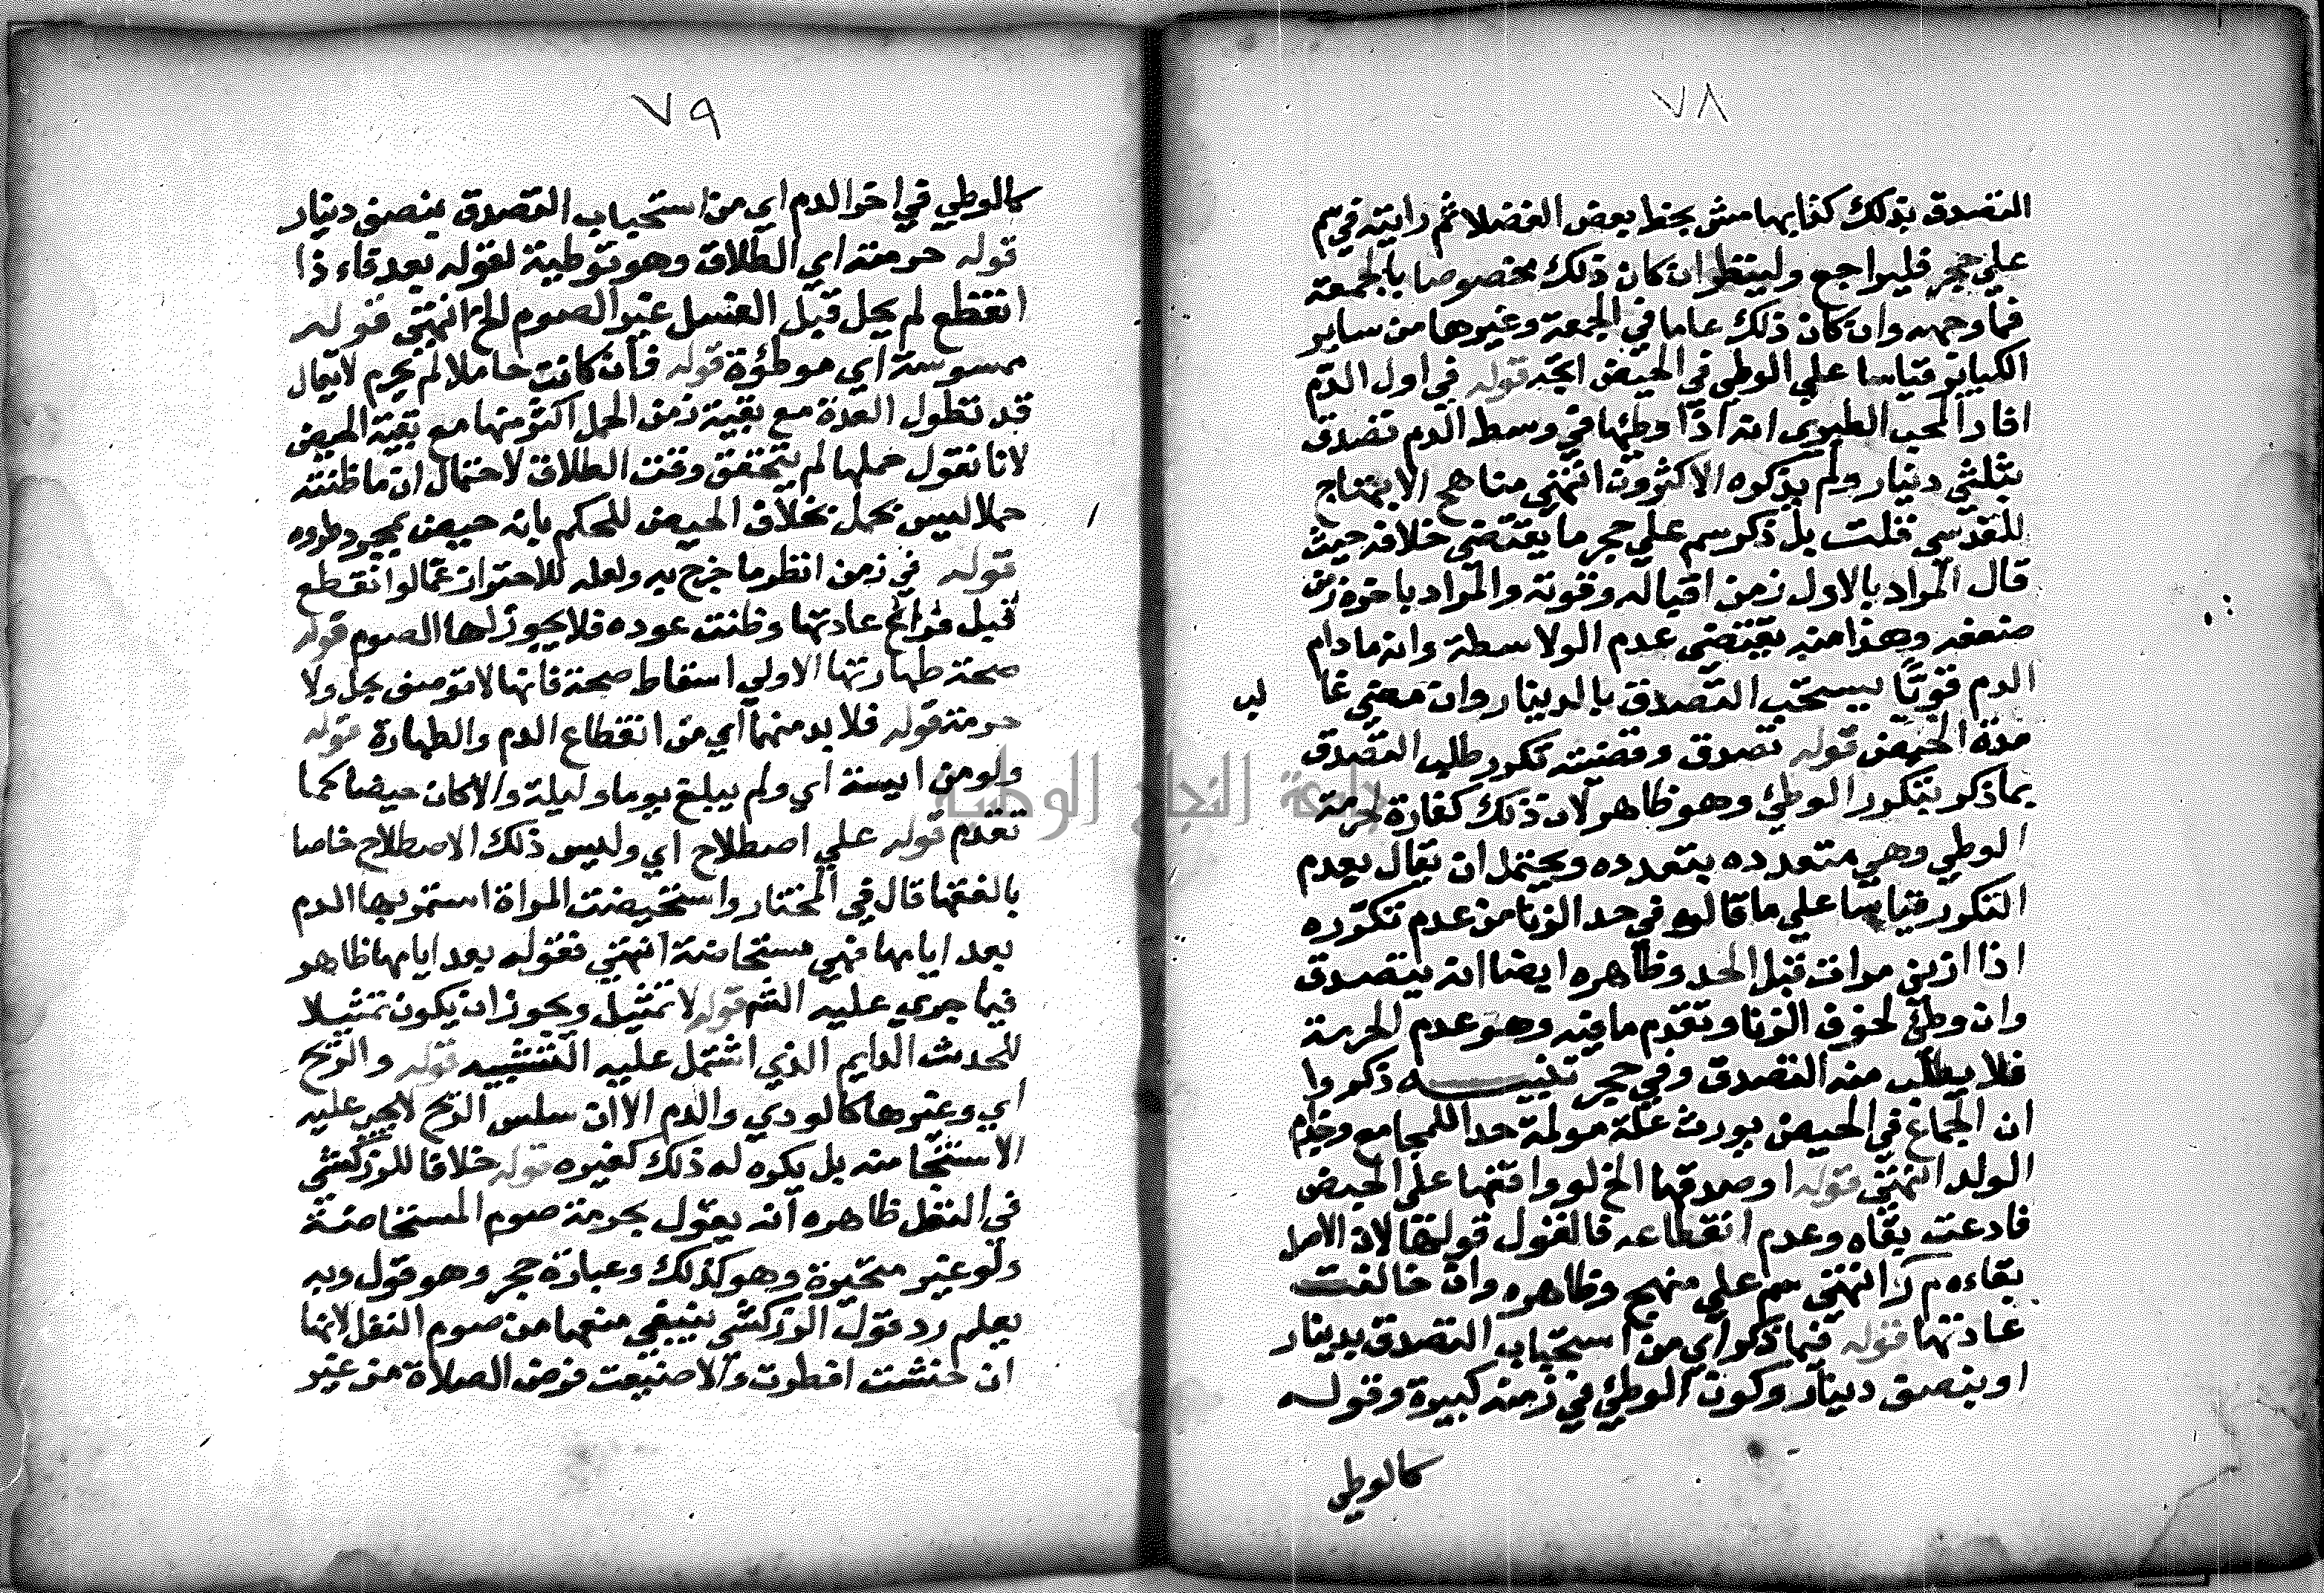 ٧٨
التصدق بذلك كذا بهامش بخط بعض الفضلا ثم رايته في سم
علي حجر فليراجع ولينظر ان كان ذلك مخصوصا بالجمعة
فما وجهه وان كان ذلك عاما في الجمعة وغيرها من ساير
الكبائر قياسا علي الوطي في الحيض اتجه قوله في اول الدم
افاد المحب الطبري انه اذا وطئها في وسط الدم تصدق
بثلثي دينار ولم يذكره الاكثرون انتهي مناهج الابتهاج
للقدسي قلت بل ذكر سم علي حجر ما يقتضي خلافه حيث
قال المراد بالاول زمن اقباله وقوته والمراد باخره زمن
ضعفه وهذا منه يقتضي عدم الواسطة وانه مادام
الدم قويا يستحب التصدق بالدينار وان مضي غا
لب
مدة الحيض قوله تصدق وقضيته تكرر طلب التصدق
بما ذكر بتكرر الوطئ وهو ظاهر لان ذلك كفارة لحرمة
الوطي وهي متعدده بتعدده ويحتمل ان يقال بعدم
التكرر قياسا علي ما قالوه في حد الزنا من عدم تكرره
اذا ازني مرات قبل الحد وظاهره ايضا انه يتصدق
وان وطئ لخوف الزنا وتقدم ما فيه وهو عدم الحرمة
فلا يطلب منه التصدق وفي حجر تنبيه ذكروا
ان الجماع في الحيض يورث علة مولمة جدا للمجامع وجذام
الولد انتهي قوله او صدقها الخ لو وافقها علي الحيض
فادعت بقاه وعدم انقطاعه فالقول قولها لان الاصل
بقاءه م ر انتهي سم علي منهج وظاهره وان خالفت
عادتها قوله فيما ذكر اي من استحباب التصدق بدينار
او بنصف دينار وكون الوطئ في زمنه كبيرة وقوله
كالوطي
٧٩
كالوطي في اخر الدم اي من استحباب التصدق بنصف دينار
قوله حرمته اي الطلاق وهو توطية لقوله بعد فاءذا
انقطع لم يحل قبل الغسل غير الصوم الخ انتهي قوله
ممسوسة اي موطؤة قوله فان كانت حاملا لم يحرم لا يقال
قد تطول العدة مع بقية زمن الحمل اكثر منها مع بقية الحيض
لانا نقول حملها لم يتحقق وقت الطلاق لاحتمال ان ما ظنته
حملا ليس بحمل بخلاف الحيض للحكم بانه حيض بمجرد طروه
قوله في زمن انظر ما خرج به ولعله للاحتراز عما لو انقطع
قبل عادتها وظنت عوده فلا يجوز لها الصوم قوله
صحة طهارتها الاولي اسقاط صحة فانها لا توصف بحل ولا
حرمة قوله فلا بد منهما اي من انقطاع الدم والطهارة قوله
ولو من ايسة اي ولم يبلغ يوما وليلة والا كان حيضا كما
تقدم قوله علي اصطلاح اي وليس ذلك الاصطلاح خاصا
بالفقها قال في المختار واستحيضت المراة استمر بها الدم
بعد ايامها فهي مستحاضة انتهي فقوله بعد ايامها ظاهر
فيما جري عليه الشم قوله لا تمثيل ويجوز ان يكون تمثيلا
للحدث الدايم الذي اشتمل عليه التشبيه قوله والريح
اي وغيرها كالودي والدم الا ان سلس الريح لا يجب عليه
الاستنجا منه بل يكره له ذلك كغيره قوله خلافا للزركشي
في النفل ظاهره انه يقول بحرمة صوم المستحاضة
ولو غير متحيرة وهو كذلك وعبارة حجر وهو قول وبه
يعلم رد قول الزركشي ينبغي منعها من صوم النفل لانها
ان حشت افطرت والا ضيعت فرض الصلاة من غير
جامعة النجاح الوطنية